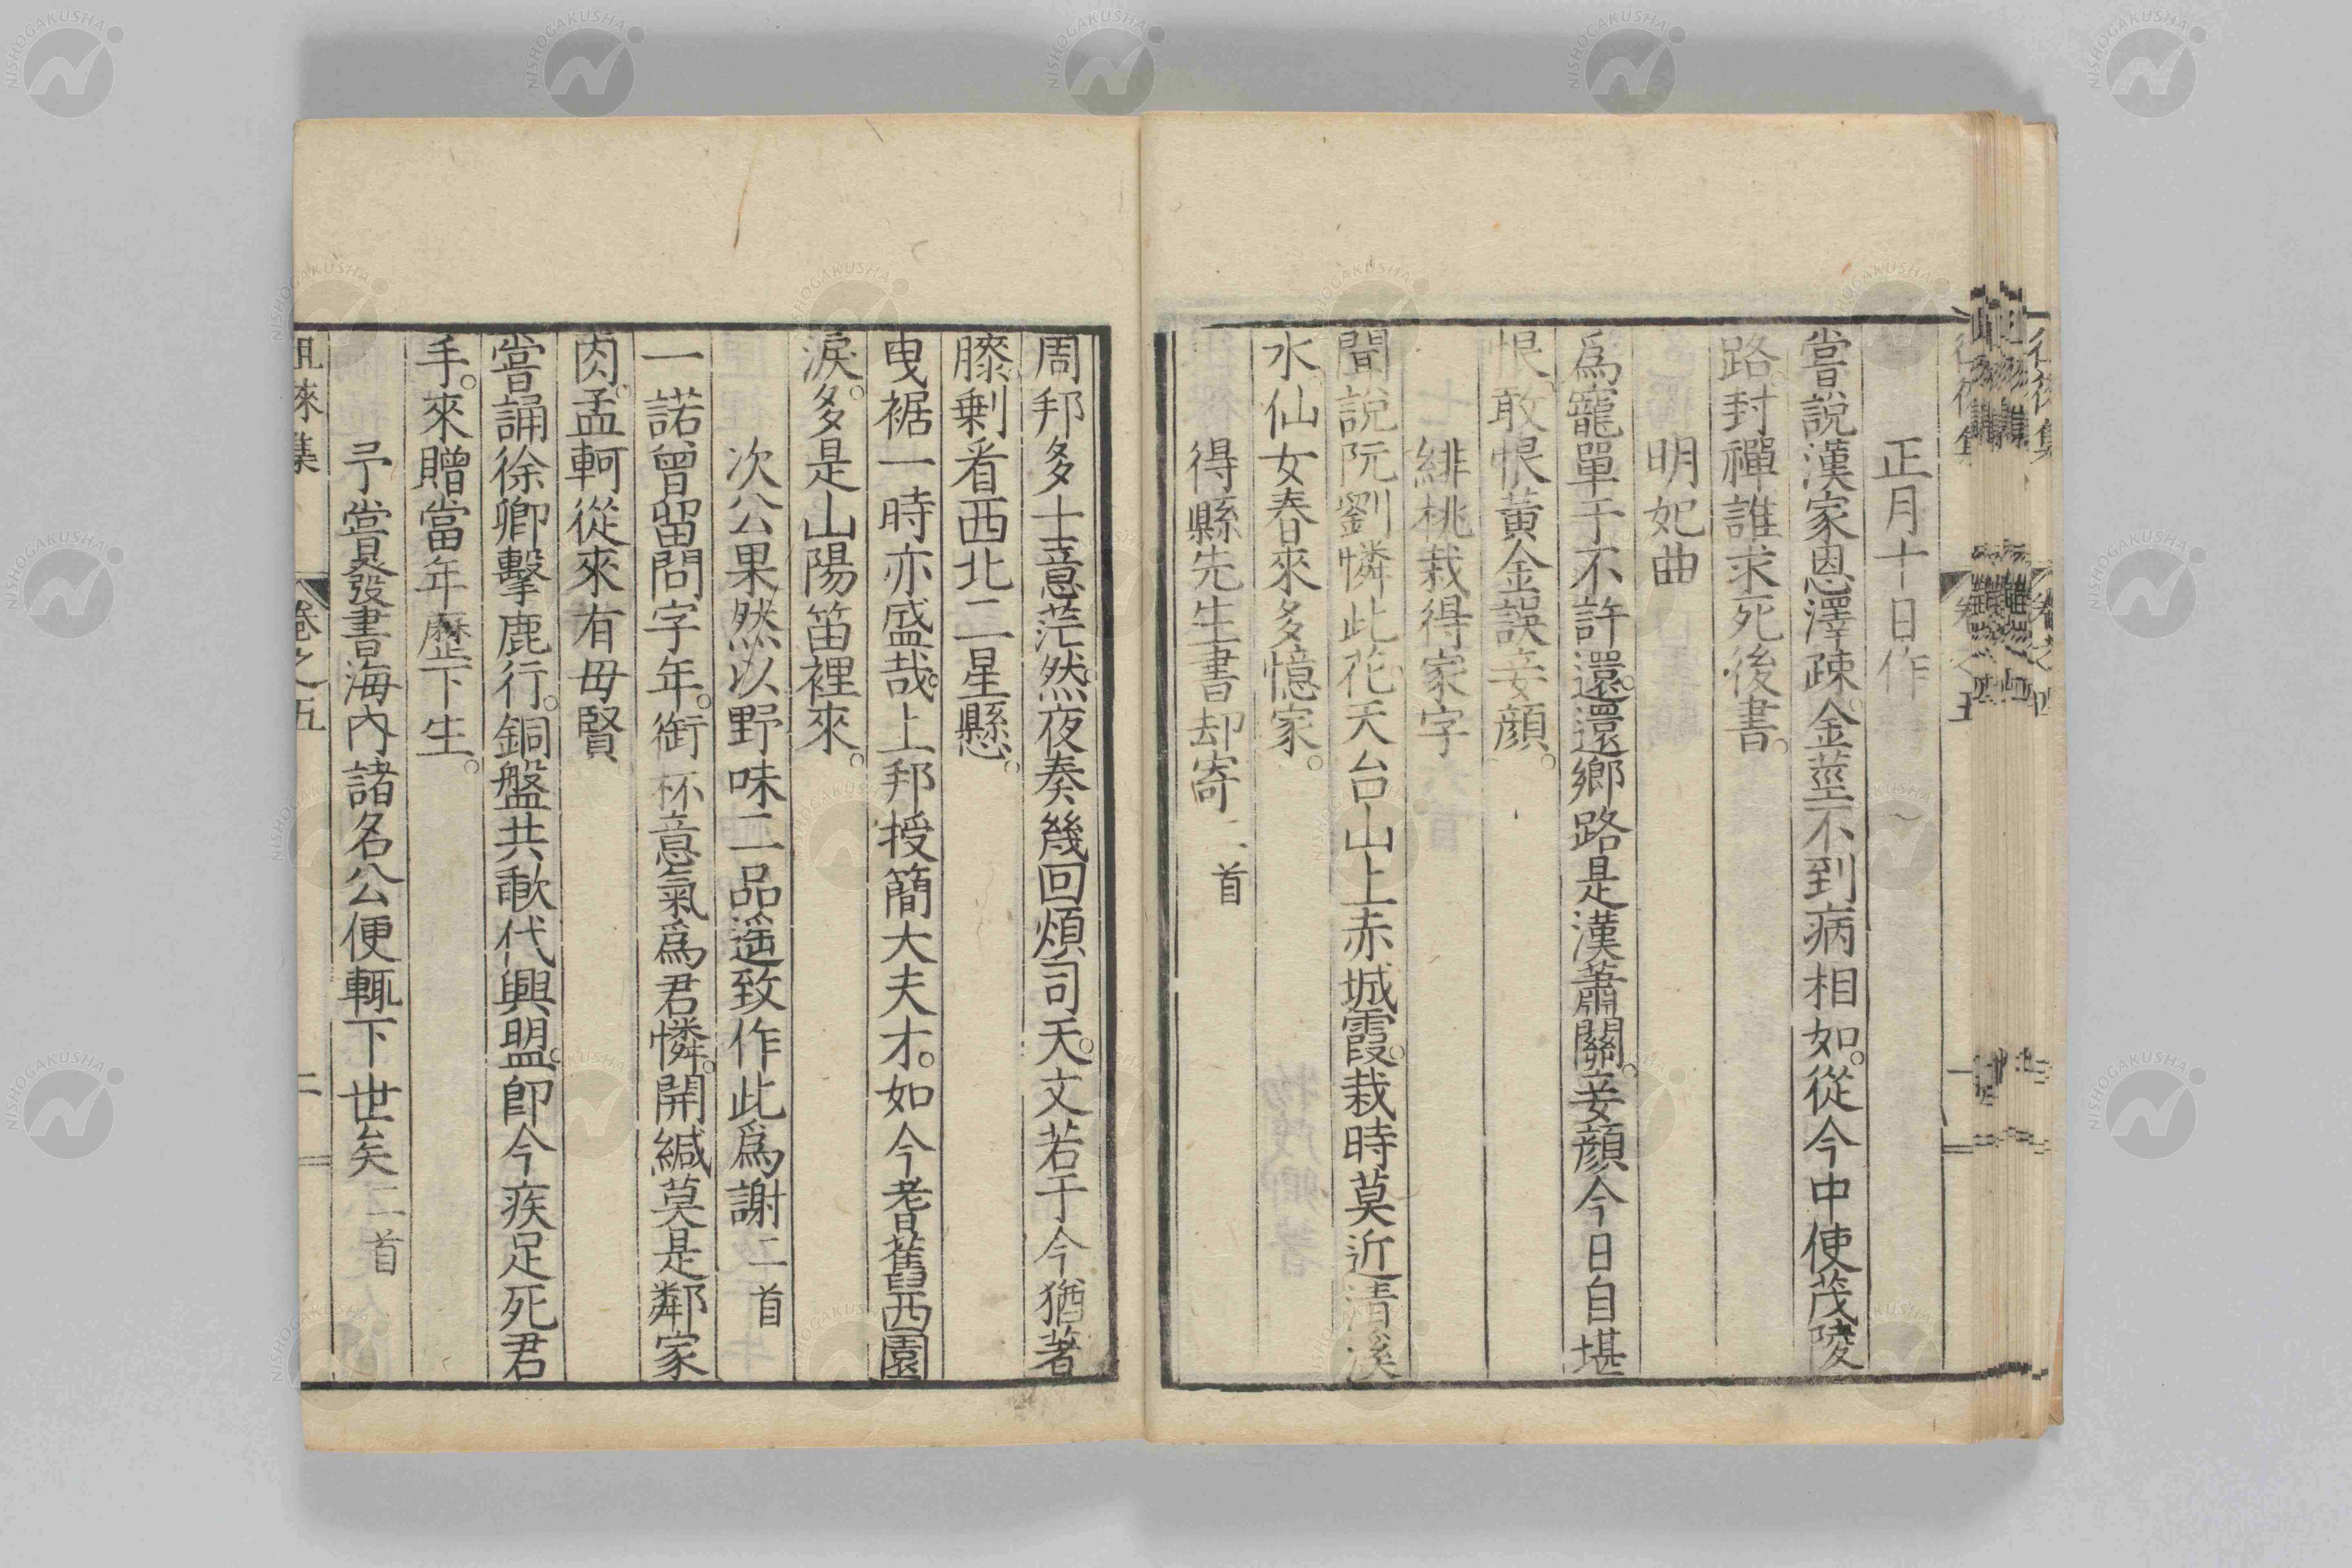 正月十日作
嘗說漢家恩澤疎。金莖不到病相如。從今中使茂陵
路。封禪誰求死後書。
明妃曲
爲寵單于不許還。還鄉路是漢蕭關。妾顏今日自堪
恨。敢恨黃金誤妾顏。
緋桃栽得家字
聞說阮劉憐此花。天台山上赤城霞。栽時莫近清溪
水。仙女春來多憶家。
得縣先生書却寄二首
周邦多士意茫然。夜奏幾回煩司天。文若于今猶著
膝。剩看西北二星懸。
曳裾一時亦盛哉。上邦授簡大夫才。如今耆舊西園
淚。多是山陽笛裡來。
次公果然以野味二品遥致作此爲謝二首
一諾曾留問字年。銜杯意氣爲君憐。開緘莫是鄰家
肉。孟軻從來有毋賢
嘗誦徐卿擊鹿行。銅盤共歃代興盟。卽今疾足死君
手。來贈當年歷下生。
予嘗貽書海內諸名公便輒下世矣二首
徂徠集 卷之五 二
NISHOGAKUSHA